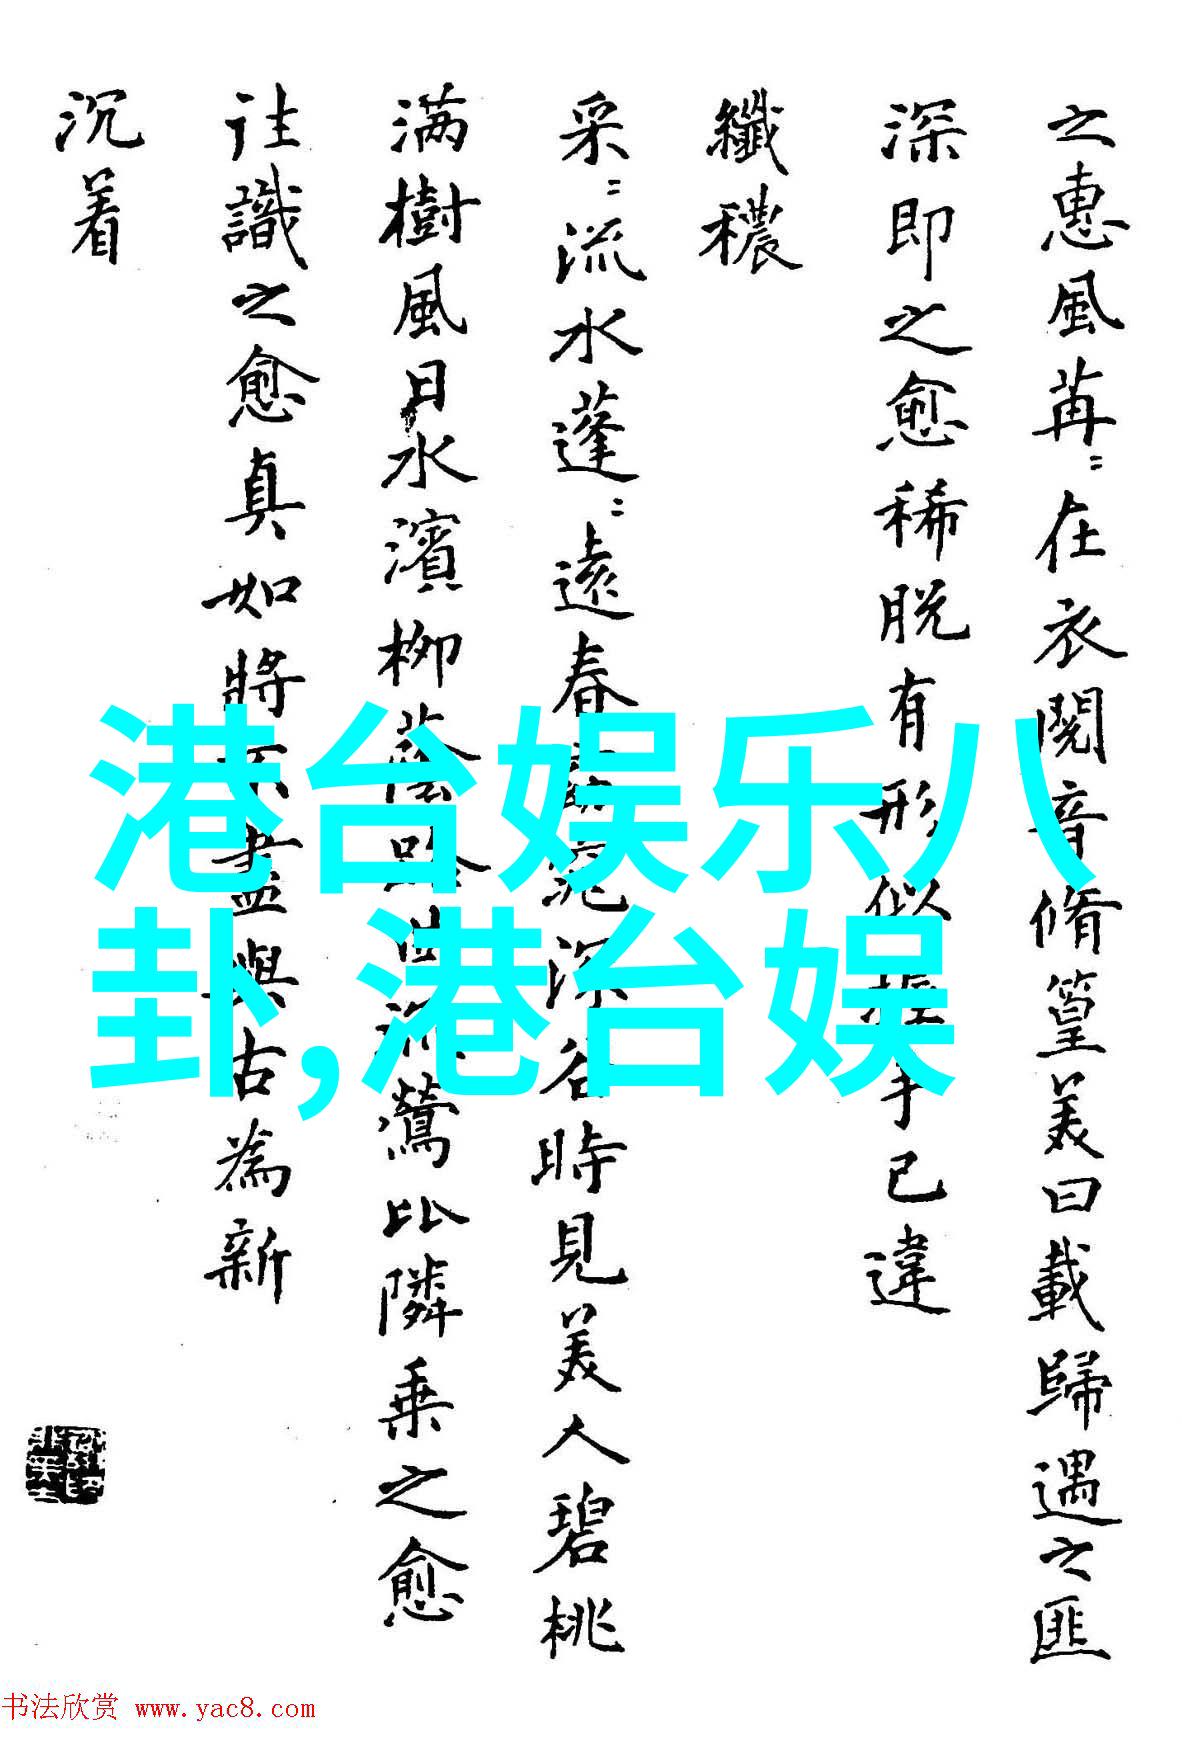 之惠風苒〻在衣閱音脩篁美曰載歸遇之匪
深即之愈稀脱有形似手已違
纖穠
采〻流水蓬〻遠春窕深谷時見美人碧桃
满樹風日水濱柳蔭路曲流鶯比隣乗之愈
往識之愈真如將不盡與古為新
沉着
港台娱乐八
卦,港台娱
书法欣赏 www.yac8.com